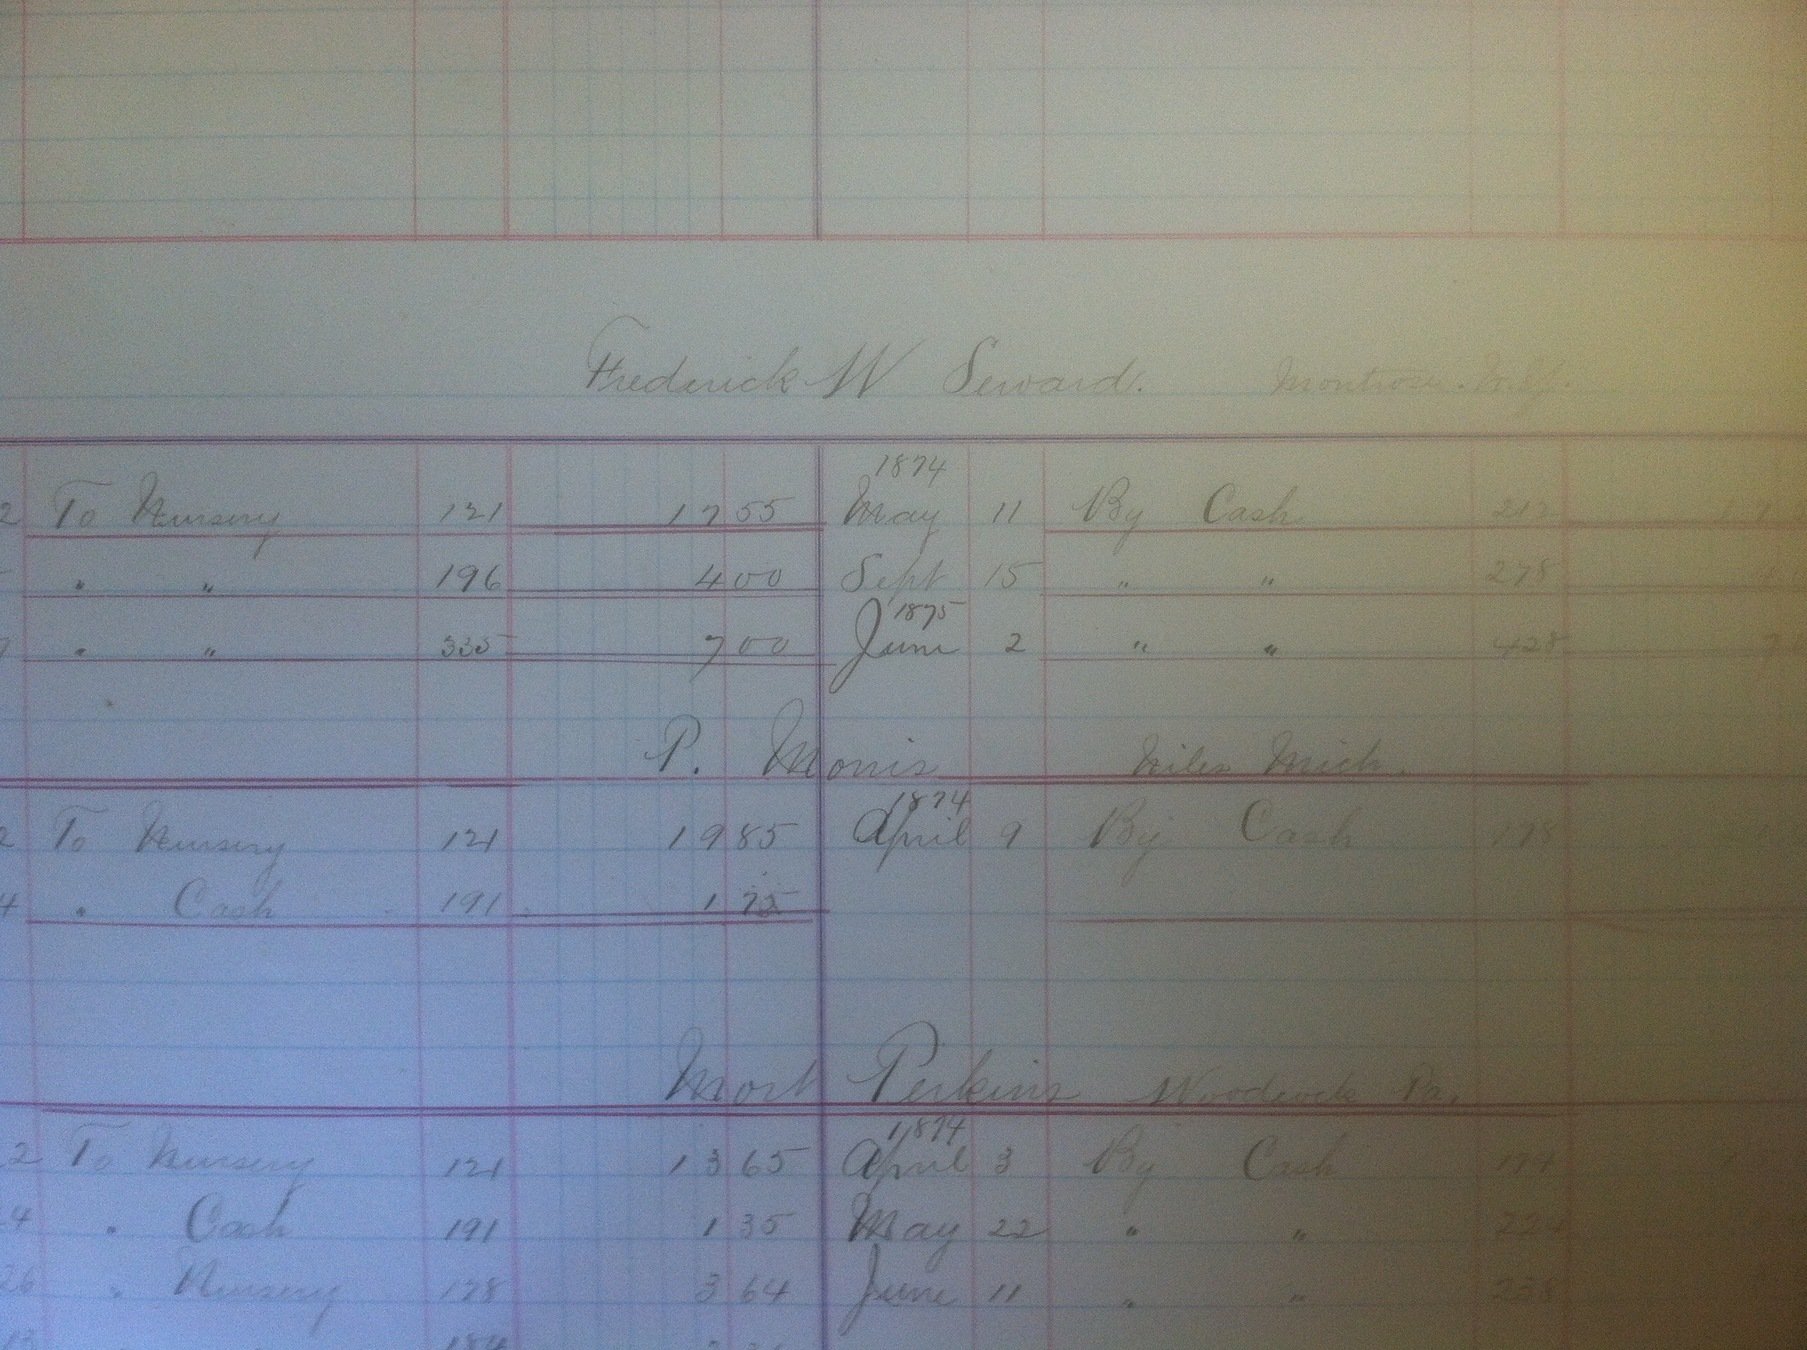 Frederick W Seward. Montrose. N.Y.
1874
2 To Nursery 121 17 55 May 11 By Cash 212 17
" " 196 4 00 Sept 15 " " 278
1875
7 " " 335 7 00 June 2 " " 428 7
P. Morris Niles Mich.
1874
2 To Nursery 121 19 85 April 9 By Cash 198
4 " Cash 191 1 75
Mort Perkins Woodcock Pa.
1874
2 To Nursery 121 13 65 April 3 By Cash 194
24 " Cash 191 1 35 May 22 " " 224
26 " Nursery 178 3 64 June 11 " " 238
13 184